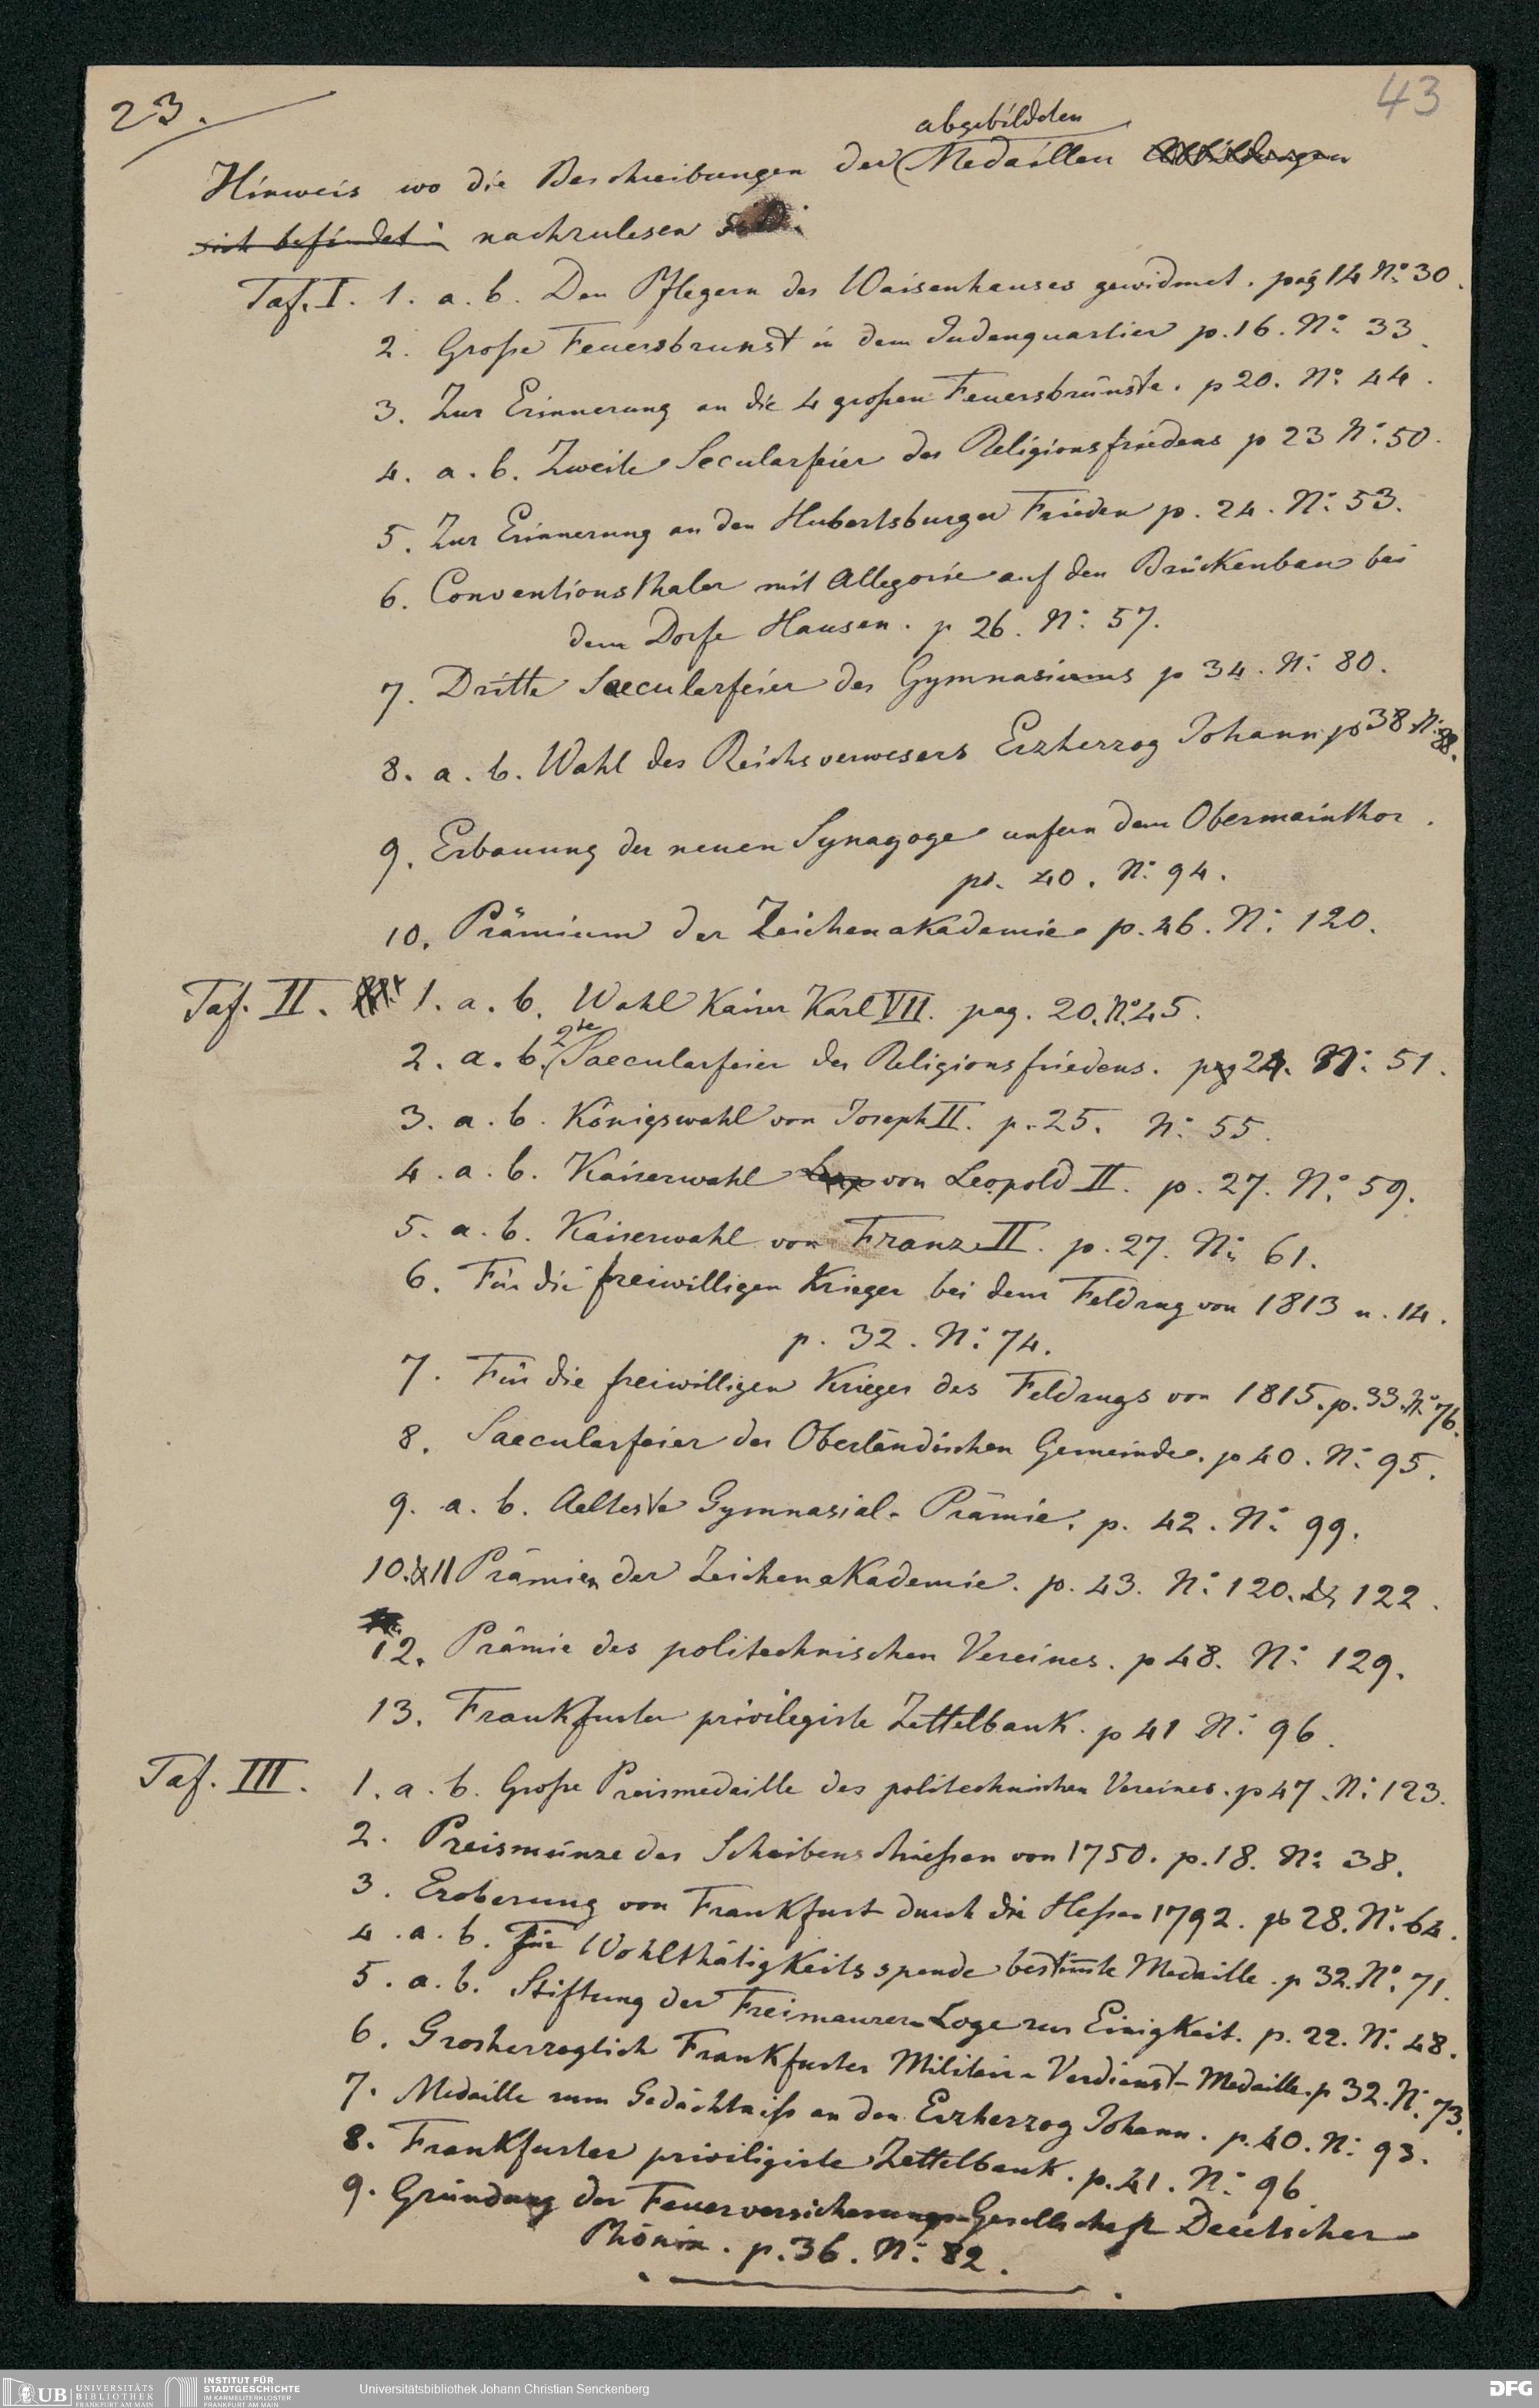 43
23.
abgebildeten
Hinweis wo die Beschreibungen der Medaillen Abbildungen
sich befindet in nachzulesen sind:
Taf. I. 1. a. b. Den Pflegern des Waisenhauses gewidmet. pag 14 No 30.
2. Große Feuersbrunst in dem Judenquartier p. 16. No 33.
3. Zur Erinnerung an die 4 großen Feuersbrünste. p 20. No 44.
4. a. b. Zweite Secularfeier des Religionsfriedens p 23 No 50.
5. Zur Erinnerung an den Hubertsburger Frieden p. 24. No 53.
6. Conventionsthaler mit Allegorie auf den Brückenbau bei
dem Dorfe Hausen. p 26. No 57.
7. Dritte Saecularfeier des Gymnasiums p 34. No 80.
8. a. b. Wahl des Reichsverwesers Erzherzog Johann p 38 No 88.
9. Erbauung der neuen Synagoge unfern dem Obermainthor.
p. 40. No 94.
10. Prämium der Zeichenakademie p. 46. No 120.
Taf. II. 1. a. b. Wahl Kaiser Karl VII. pag. 20. No 45.
2. a. b. 2te Saecularfeier des Religionsfriedens. pag 24. No 51.
3. a. b. Königswahl von Joseph II. p. 25. No 55.
4. a. b. Kaiserwahl von Leopold II. p. 27. No 59.
5. a. b. Kaiserwahl von Franz II. p. 27. No 61.
6. Für die freiwilligen Krieger bei dem Feldzug von 1813 u. 14.
p. 32. No 74.
7. Für die freiwilligen Krieger des Feldzugs von 1815. p. 33. No 76.
8. Saecularfeier der Oberländischen Gemeinde. p 40. No 95.
9. a. b. Aelteste Gymnasial-Prämie. p. 42. No 99.
10. & 11 Prämien der Zeichenakademie. p. 43. No 120. & 122.
12. Prämie des politechnischen Vereines. p 48. No 129.
13. Frankfurter privilegirte Zettelbank. p 41 No 96.
Taf. III. 1. a. b. Große Preismedaille des politechnischen Vereines. p 47. No 123.
2. Preismünze des Scheibenschießen von 1750. p. 18. No 38.
3. Eroberung von Frankfurt durch die Hessen 1792. p 28. No 64.
4. a. b. Für Wohlthätigkeitsspende bestimmte Medaille. p 32. No 71.
5. a. b. Stiftung der Freimaurer-Loge zur Einigkeit. p. 22. No 48.
6. Grosherzoglich Frankfurter Militair-Verdienst-Medaille. p 32. No 73.
7. Medaille zum Gedächtniß an den Erzherzog Johann. p. 40. No 93.
8. Frankfurter priviligirte Zettelbank. p. 41. No 96.
9. Gründung der Feuerversicherungs-Gesellschaft Deutscher
Phönix. p. 36. No 82.
UB UNIVERSITÄTS BIBLIOTHEK FRANKFURT AM MAIN
INSTITUT FÜR STADTGESCHICHTE IM KARMELITERKLOSTER FRANKFURT AM MAIN
Universitätsbibliothek Johann Christian Senckenberg
DFG